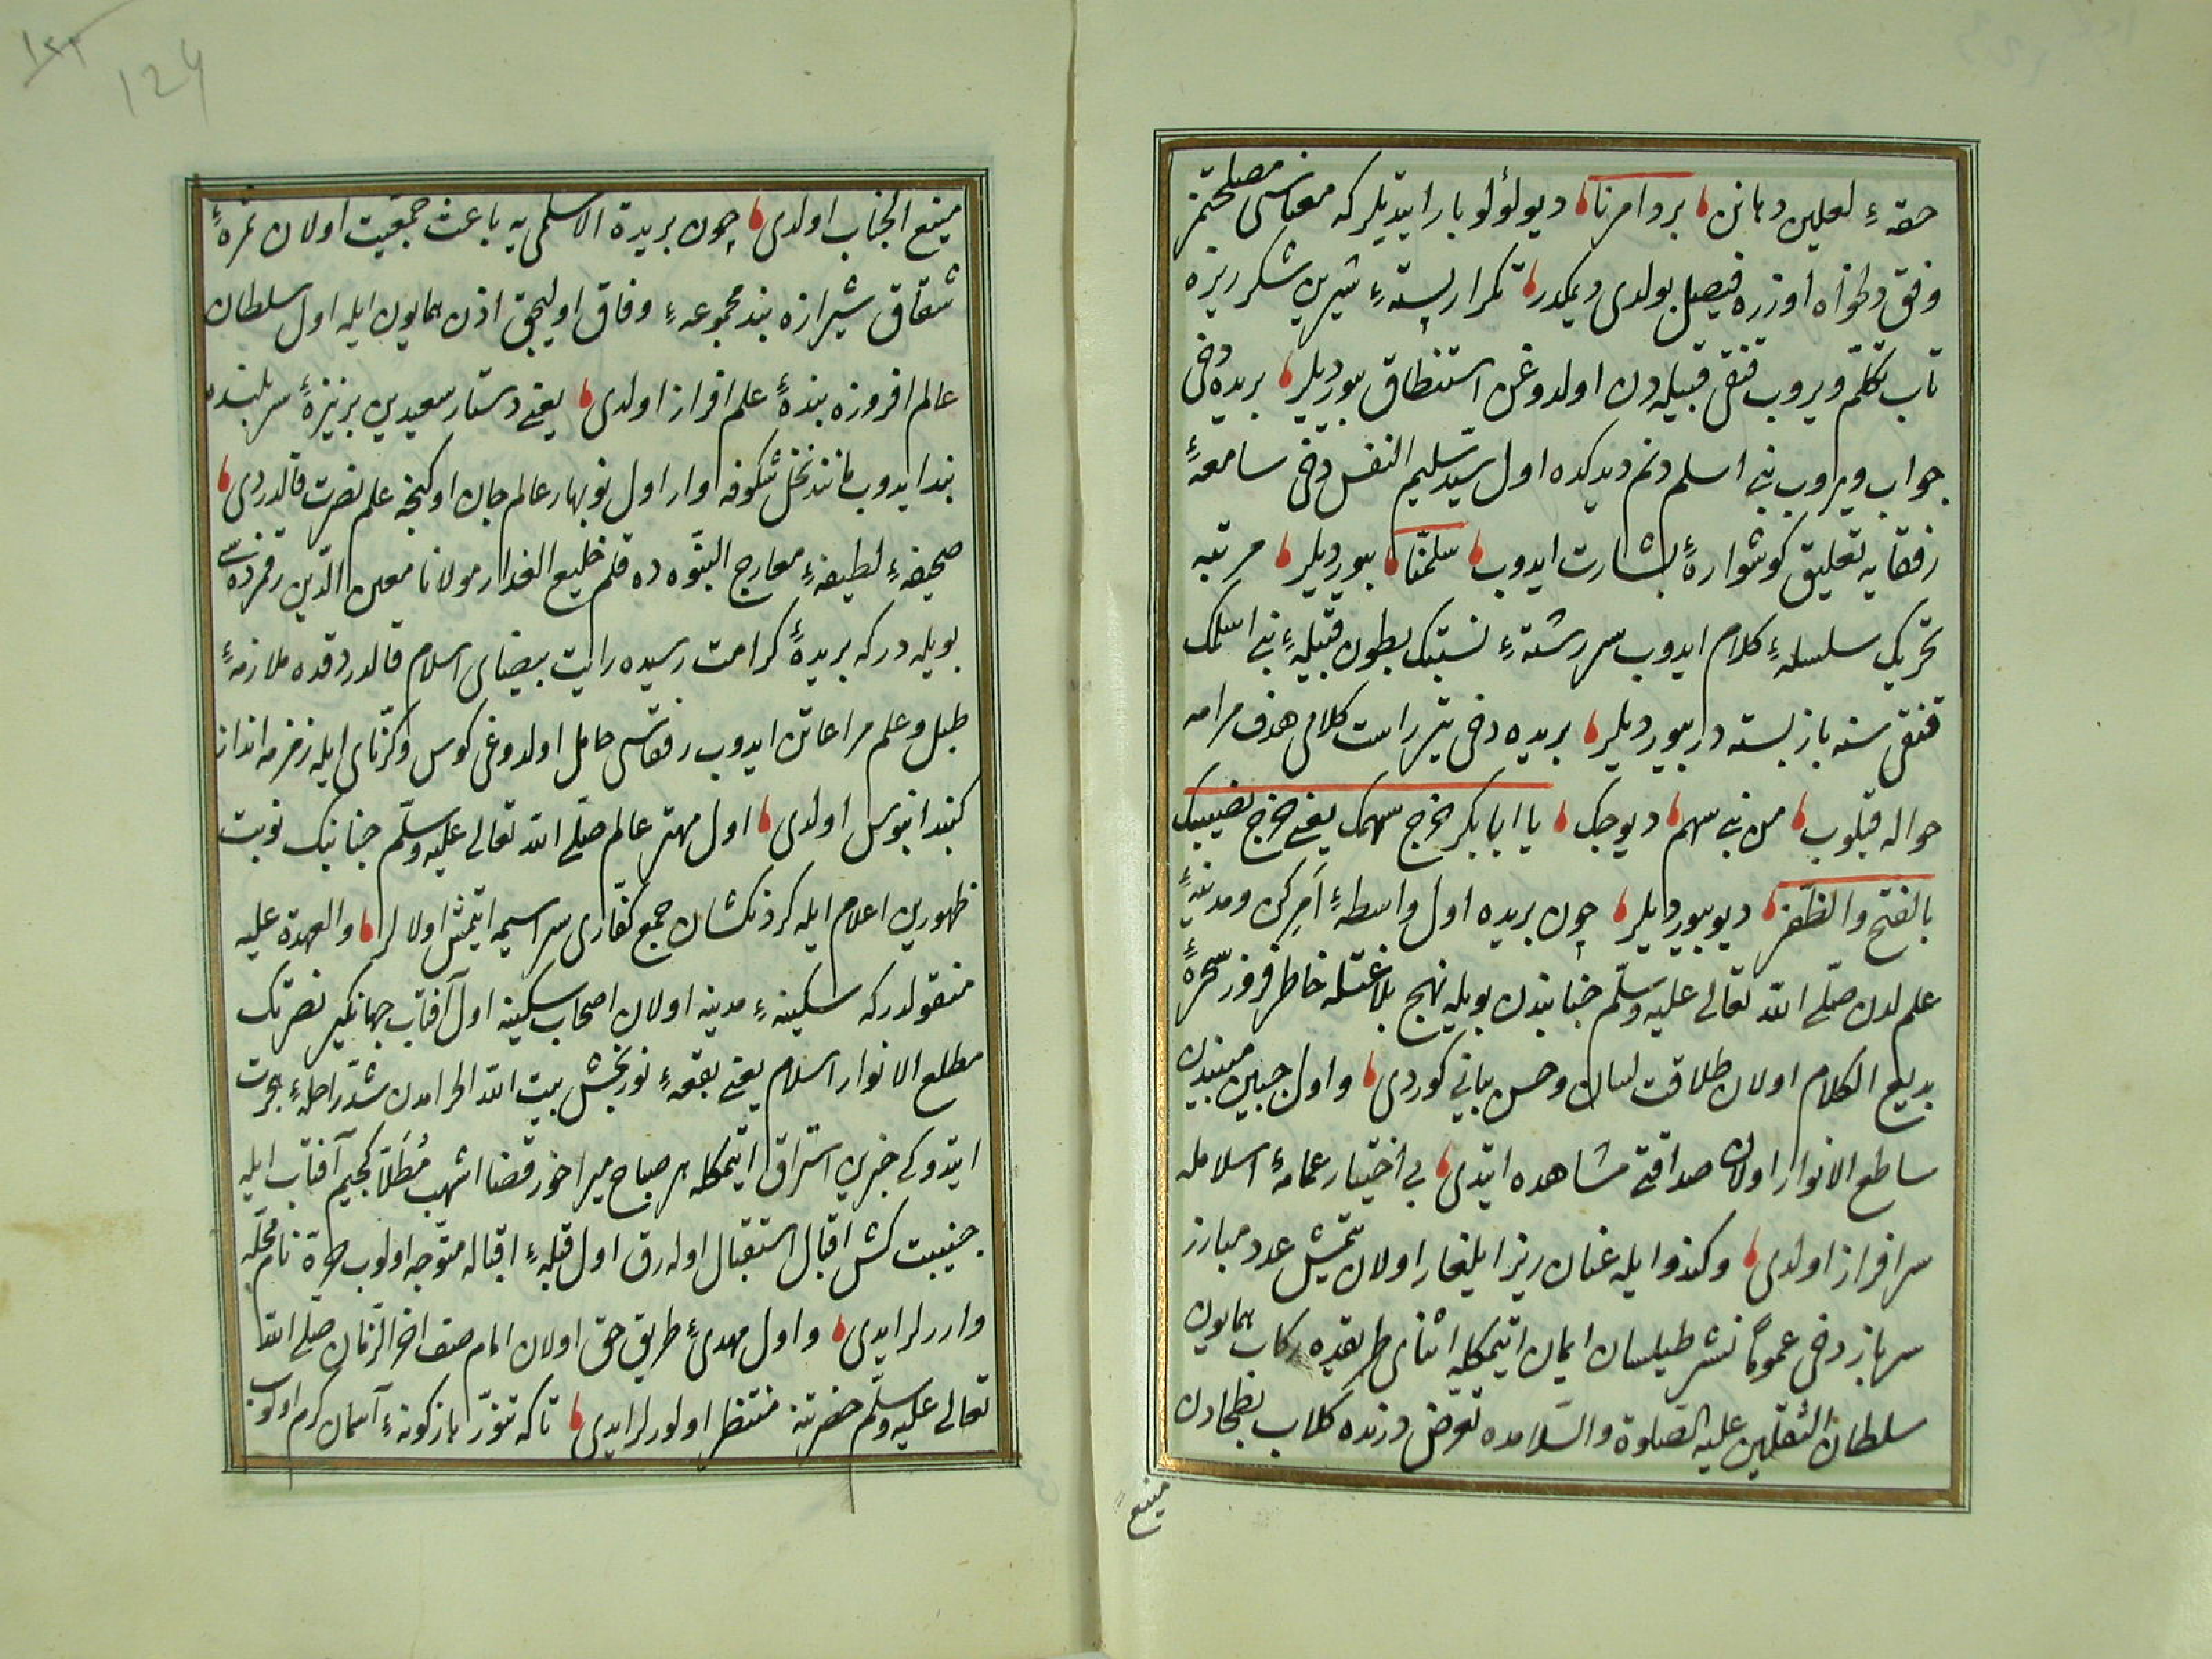 حقهٔ لعلین دهانن بردامرنا دیو لؤلؤ بار ایتدیلر که معناسی مصلحتمز
وفق دلخواه اوزره فیصل بولدی دیمکدر تکرار پستهٔ شیرین شکرریزه
تاب تکلم ویروب قنقی قبیله‌دن اولدوغن استنطاق بیوردیلر بریده دخی
جواب ویروب بنی اسلم دنم دیدکده اول سید سلیم النفس دخی سامعهٔ
رفقایه تعلیق کوشوارهٔ بشارت ایدوب سلمنا بیوردیلر مرتبه
تحریک سلسلهٔ کلام ایدوب سررشتهٔ نسبتک بطون قبیلهٔ بنی اسلمک
قنقی سنه باز بسته در بیوردیلر بریده دخی تیر راست کلامی هدف مرامه
حواله قیلوب من بنی سهم دیوجک یا ابابکر خرج سهمک یعنی خرج نصیبک
بالفتح والظفر دیو بیوردیلر چون بریده اول واسطهٔ امر کن ومدینهٔ
علم لدن صلی الله تعالی علیه وسلم جنابندن بویله نهج بلاغتله خاطر فروز سحرهٔ
بدیع الکلام اولان طلاقت لسان وحسن بیانی کوردی واول جبین مبیندن
ساطع الانوار اولان صداقتی مشاهده ایتدی بی اختیار عمامهٔ اسلامله
سرافراز اولدی وکندو ایله عنان ریز ایلغار اولان یتمش عدد مبارز
سرباز دخی عموماً نشر طیلسان ایمان ایتمکله اثنای طریقده رکاب همایون
سلطان الثقلین علیه الصلوة والسلامده تعرض درنده کلاب بطحادن
منیع
۱۲۲
124
منیع الجناب اولدی چون بریدة الاسلمی یه باعث جمعیت اولان ثمرهٔ
شقاق شیرازه بند مجموعهٔ وفاق اولیجق اذن همایون ایله اول سلطان
عالم افروزه بندهٔ علم افراز اولدی یعنی دستار سعیدین بر نیزهٔ سربلنده
بند ایدوب مانند نخل شکوفه اوار اول نوبهار عالم جان اوکنجه علم نصرت قالدردی
صحیفهٔ لطیفهٔ معارج النبوه ده قلم خلیع العذار مولانا معین الدین رقمزده سی
بویله درکه بریدهٔ کرامت رسیده رایت بیضای اسلام قالدردقده ملازمهٔ
طبل وعلم مراعاتن ایدوب رفقاسی حامل اولدوغی کوس وکرنای ایله زمزمه انداز
کنبد ابنوس اولدی اول مهتر عالم صلی الله تعالی علیه وسلم جنابنک نوبت
ظهورین اعلام ایله کردنکشان جمع کفاری سراسیمه ایتمش اولالر والعهدة علیه
منقولدرکه سکینهٔ مدینه اولان اصحاب سکینه اول آفتاب جهانکیر نصرتک
مطلع الانوار اسلام یعنی بقعهٔ نوربخش بیت الله الحرامدن شد راحلهٔ هجرت
ایتدوکی خبرین استراق ایتمکله هر صباح میراخور قضا اشهب مطلا لجیم آفتاب ایله
جنیبت کش اقبال استقبال اوله رق اول قبلهٔ اقباله متوجه اولوب حره نام محله
واررلر ایدی واول مهدیٔ طریق حق اولان امام صف اخر الزمان صلی الله
تعالی علیه وسلم حضرتنه منتظر اولورلر ایدی تاکه تنور بازکونهٔ آسمان کرم اولوب